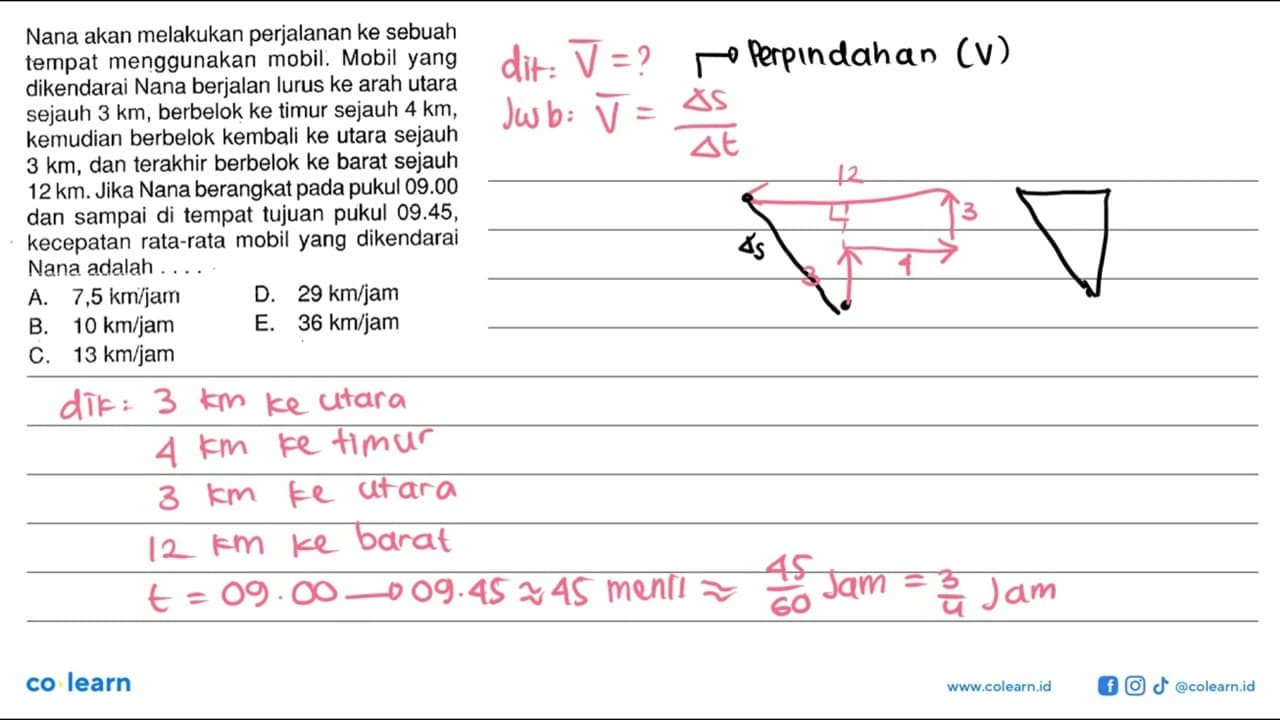 Nana akan melakukan perjalanan ke sebuah
tempat menggunakan mobil. Mobil yang
dikendarai Nana berjalan lurus ke arah utara
sejauh 3 km, berbelok ke timur sejauh 4 km,
kemudian berbelok kembali ke utara sejauh
3 km, dan terakhir berbelok ke barat sejauh
12 km. Jika Nana berangkat pada pukul 09.00
dan sampai di tempat tujuan pukul 09.45,
kecepatan rata-rata mobil yang dikendarai
Nana adalah . . . .
A. 7,5 km/jam D. 29 km/jam
B. 10 km/jam E. 36 km/jam
C. 13 km/jam
dit: V̅ = ? Perpindahan (V)
Jwb: V̅ = Δs/Δt
12
4
3
Δs
3
4
dik: 3 km ke utara
4 km ke timur
3 km ke utara
12 km ke barat
t = 09.00 → 09.45 ≈ 45 menit ≈ 45/60 Jam = 3/4 Jam
co learn
www.colearn.id @colearn.id